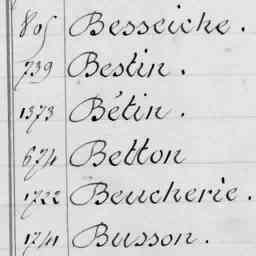 805 Besseiche.
739 Bestin.
1373 Bétin.
674 Betton
1722 Beucherie.
1741 Busson.